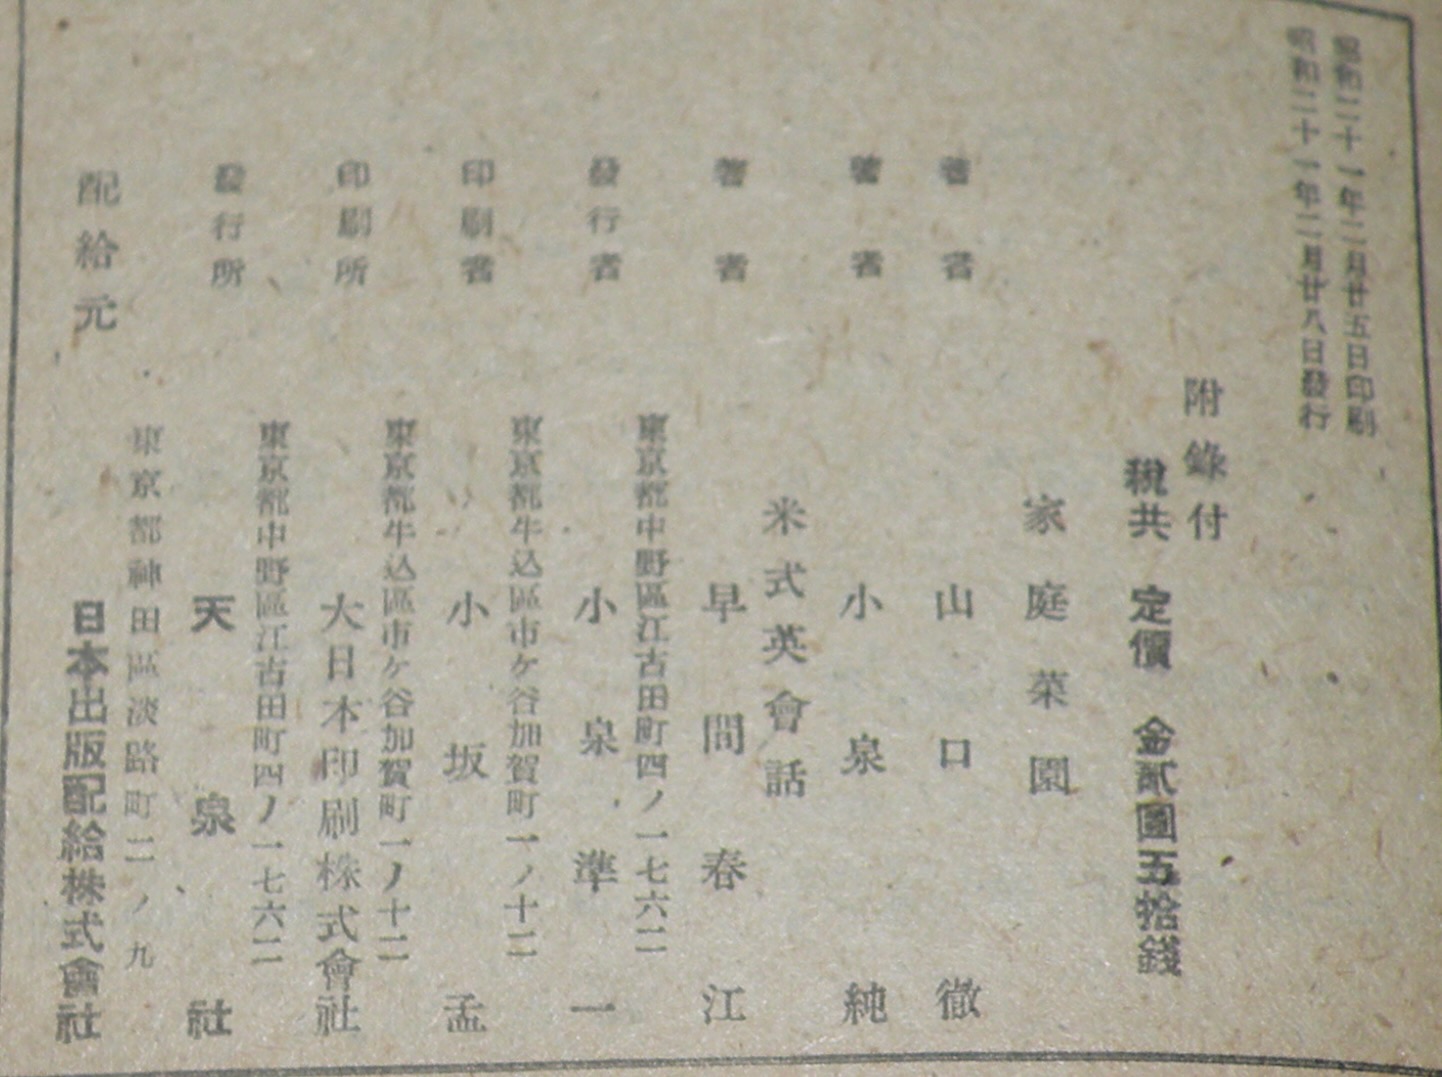 昭和二十一年二月廿五日印刷
昭和二十一年二月廿八日發行
附錄付
稅共 定價 金貳圓五拾錢
家庭菜園
著者 山口徹
著者 小泉純
米式英會話
著者 早間春江
東京都中野區江古田町四ノ一七六二
發行者 小泉準一
東京都牛込區市ケ谷加賀町一ノ十二
印刷者 小坂孟
東京都牛込區市ケ谷加賀町一ノ十二
印刷所 大日本印刷株式會社
東京都中野區江古田町四ノ一七六二
發行所 天泉社
東京都神田區淡路町二ノ九
配給元 日本出版配給株式會社